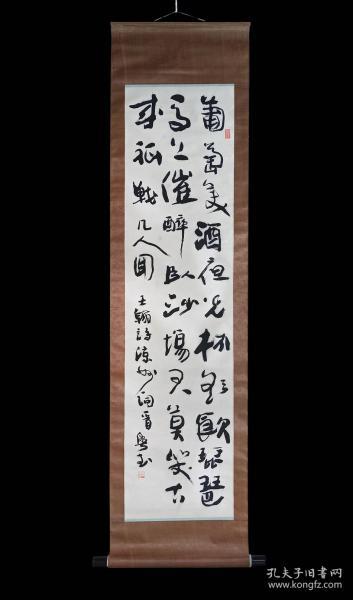 葡萄美酒夜光杯欲飲琵琶
馬上催醉臥沙場君莫笑古
来征戰几人回
王翰詩涼州詞晉
孔夫子旧书网
www.kongfz.com